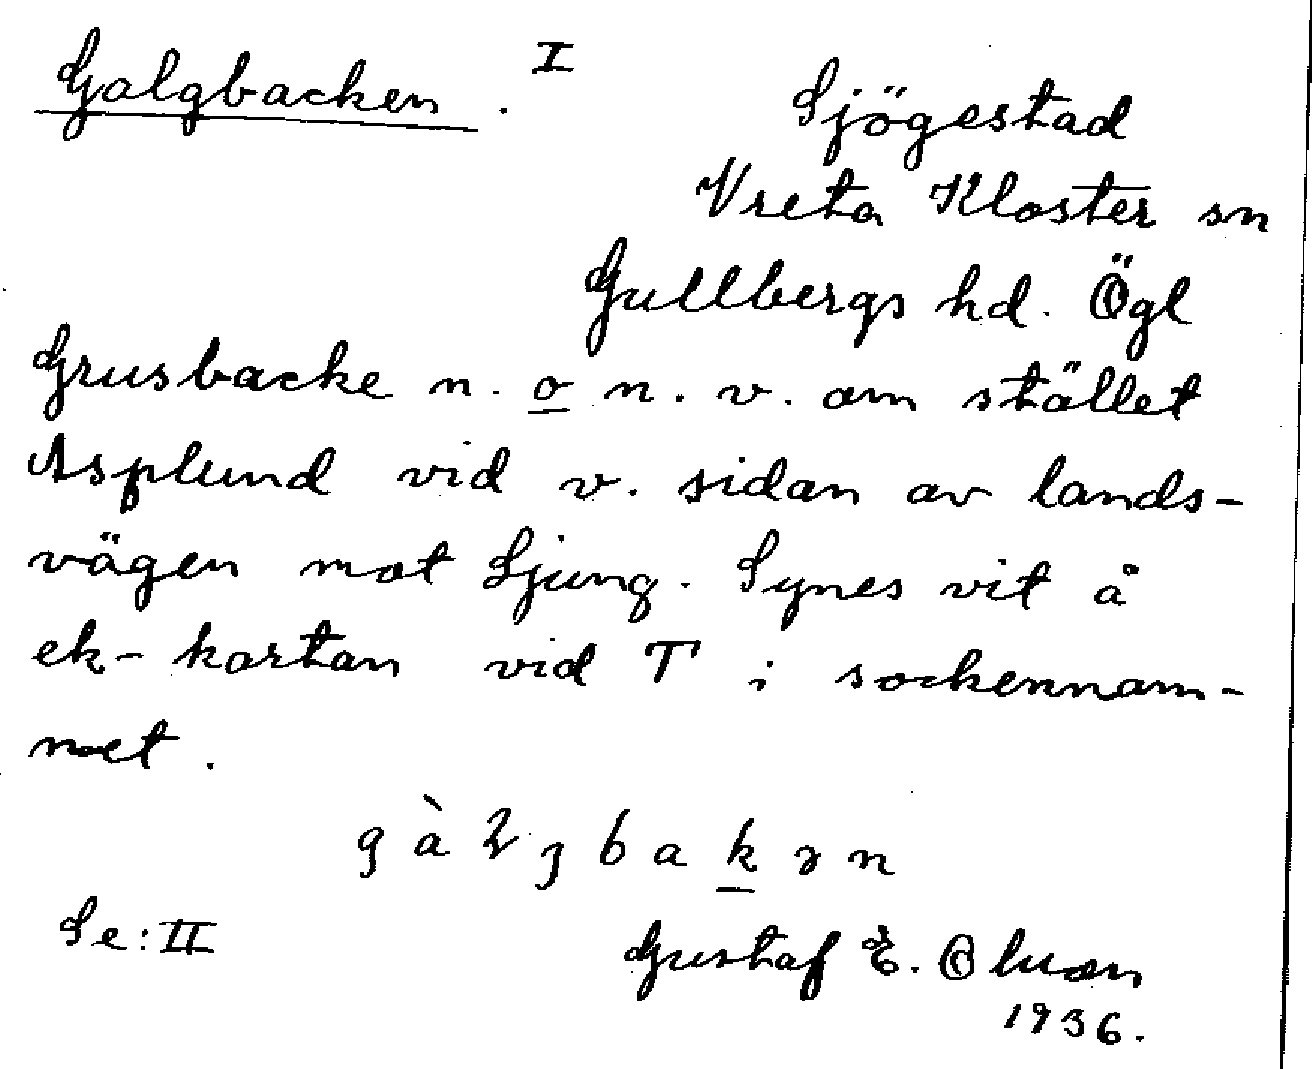 Galgbacken. I
Sjögestad
Vreta Kloster sn
Gullbergs hd. Ögl
Grusbacke n. o n. v. om stället
Asplund vid v. sidan av lands-
vägen mot Ljung. Synes vit å
ek-kartan vid T i sockennam-
net.
Se: II
Gustaf E.
1936.